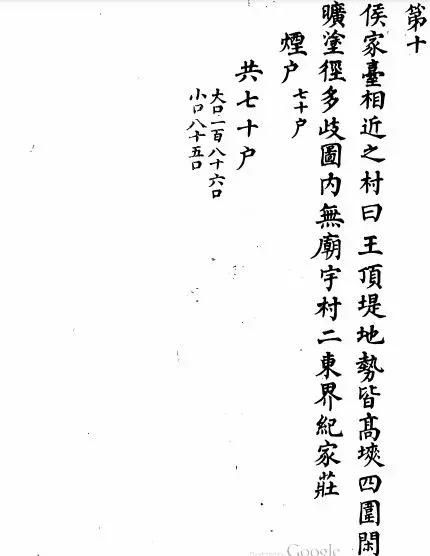 第十
侯家臺相近之村曰王頂堤地勢皆高埉四圍閑
曠塗徑多歧圖内無廟宇村二東界紀家莊
煙户
七十户
共七十户
大口一百八十六口
小口八十五口
Google